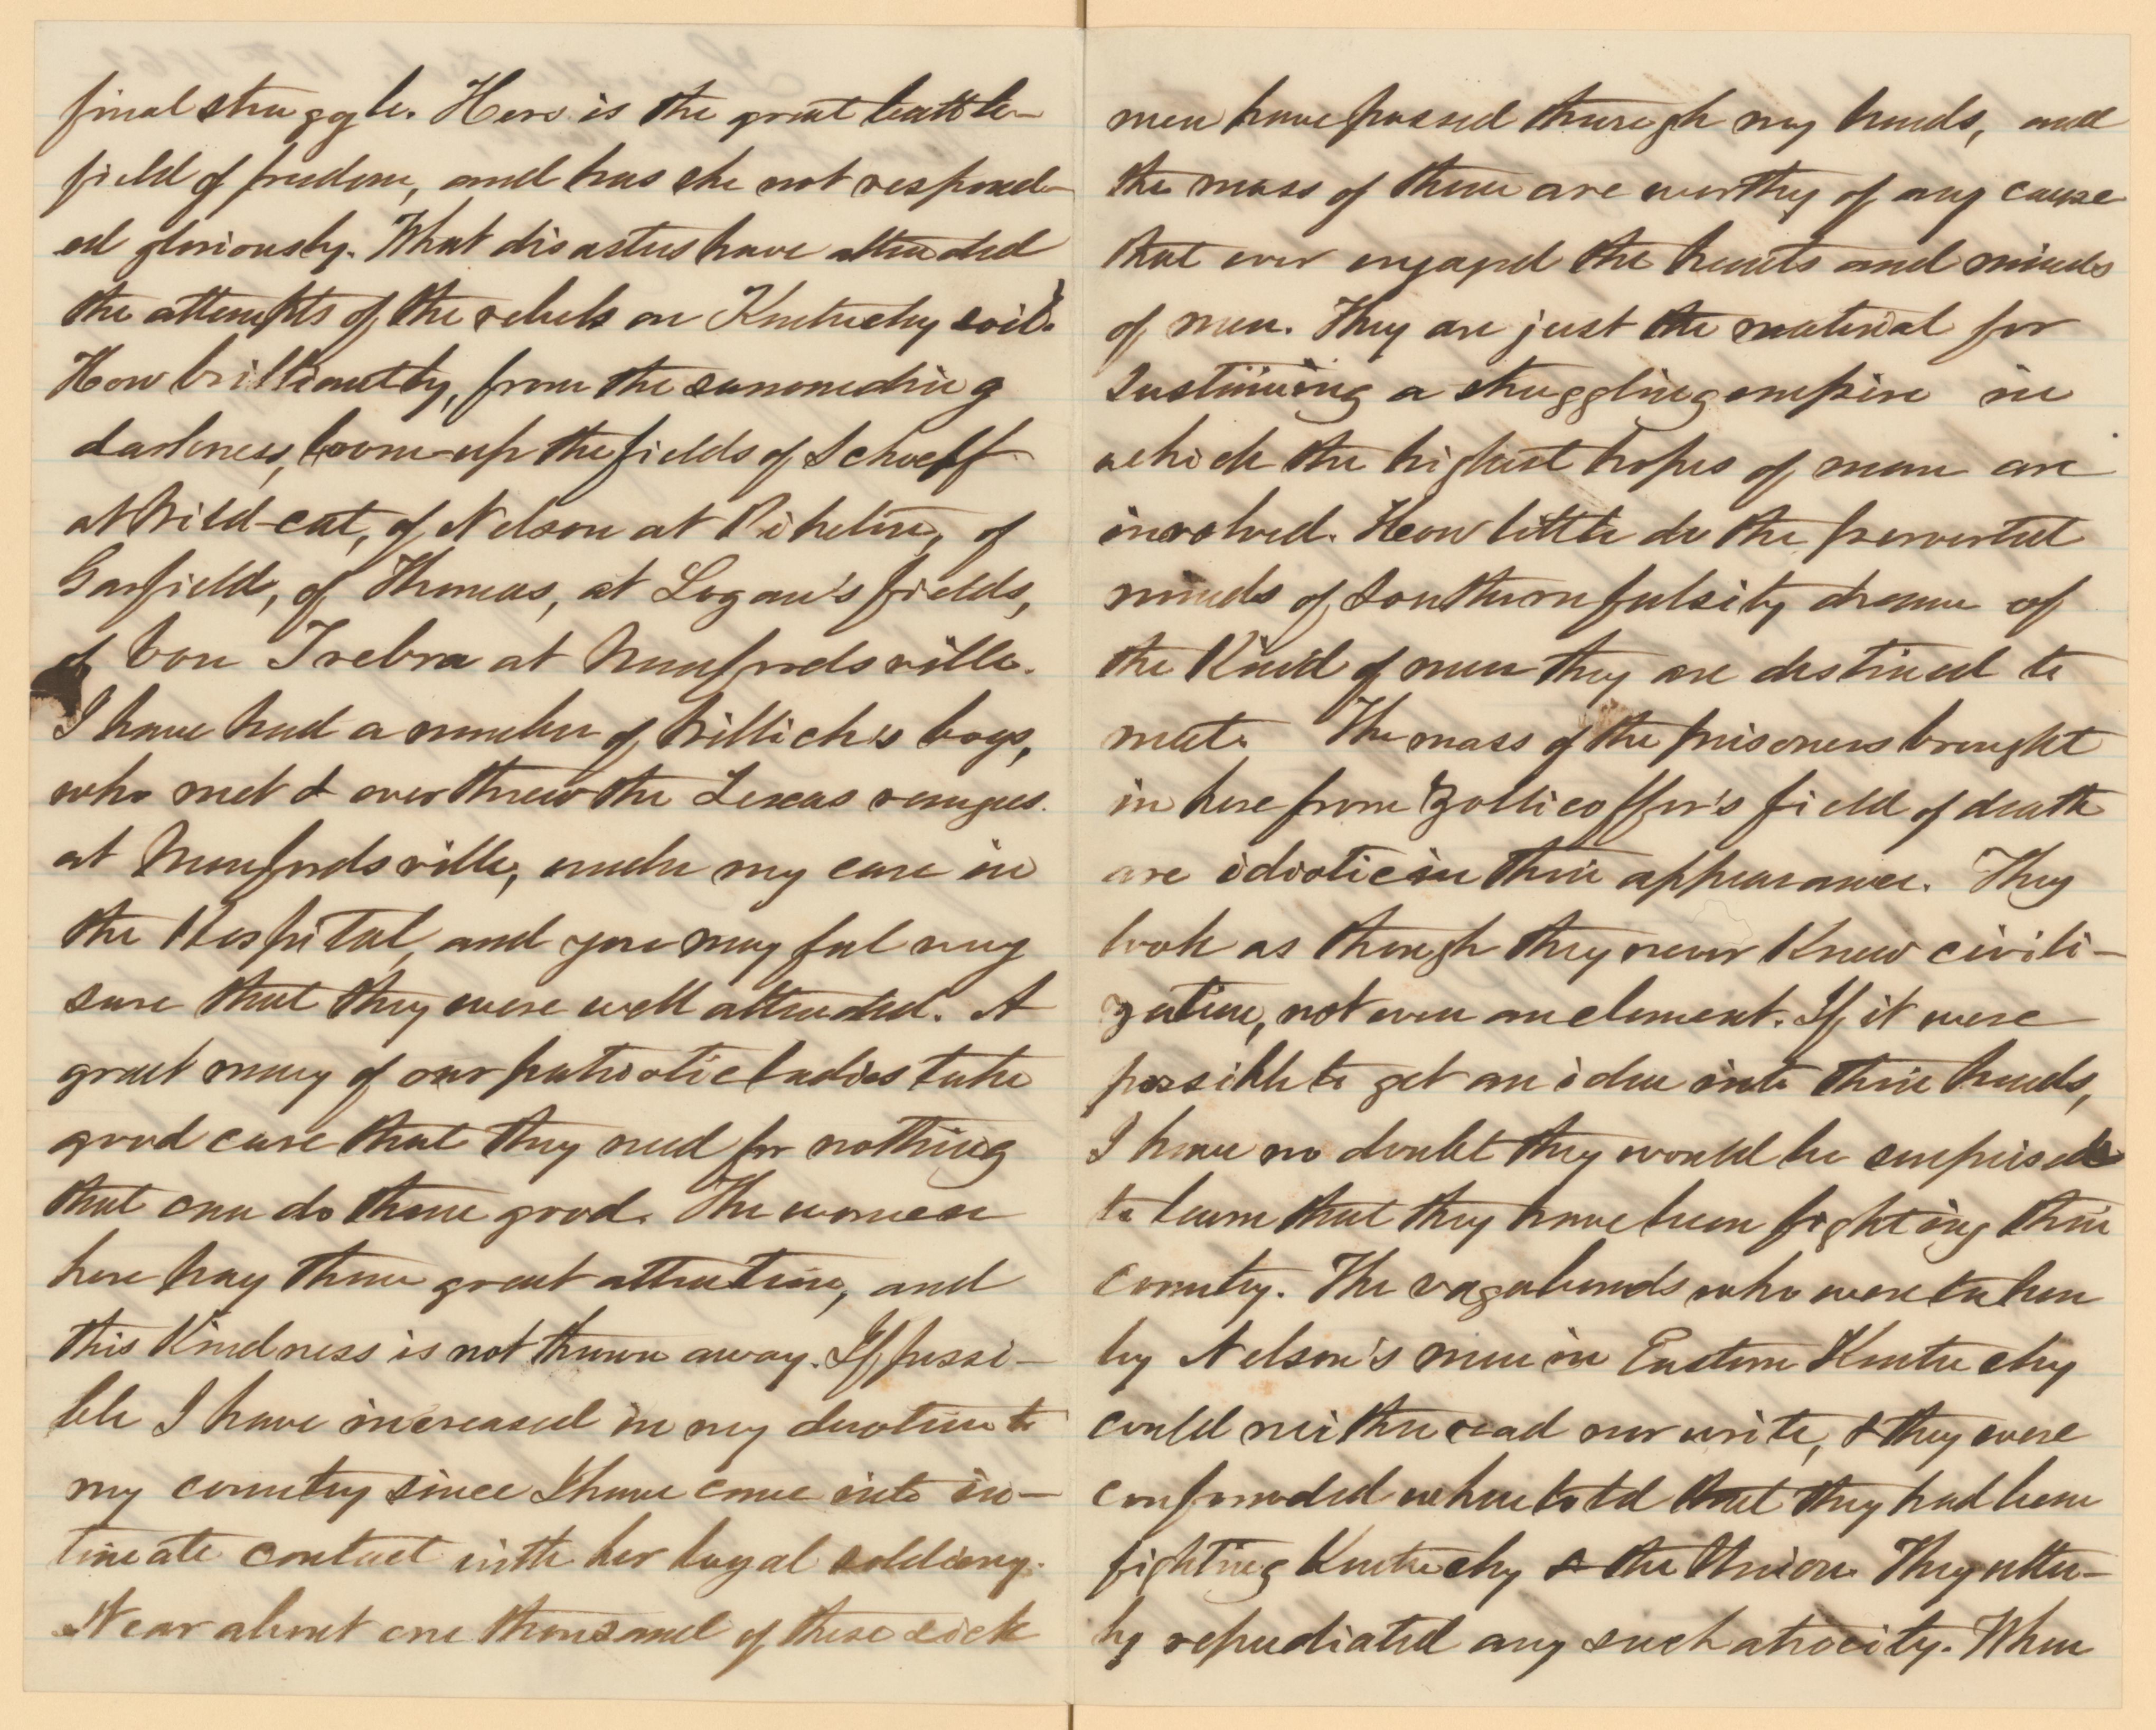 final struggle. Here is the great battle-
field of freedom, and has she not respond-
ed gloriously. What disasters have attended
the attempts of the rebels on Kentucky soil.
How brilliantly, from the surrounding
darkness, loom up the fields of Schoeff
at Wild-cat, of Nelson at Piketon, of
Garfield, of Thomas, at Logan's fields,
of Von Trebra at Munfordsville.
I have had a number of Willich's boys,
who met & overthrew the Texas rangers
at Munfordsville, under my care in
the Hospital, and you may feel very
sure that they were well attended. A
great many of our patriotic ladies take
good care that they need for nothing
that can do them good. The women
here pay them great attention, and
this Kindness is not thrown away. If possi-
ble I have increased in my devotion to
my country since I have come into in-
timate contact with her loyal soldiery.
Near about one thousand of these sick
men have passed through my hands, and
the mass of them are worthy of any cause
that ever engaged the hearts and minds
of men. They are just the material for
sustaining a struggling empire in
which the highest hopes of man are
involved. How little do the perverted
minds of Southern falsity dream of
the Kind of men they are destined to
meet. The mass of the prisoners brought
in here from Zollicoffer's field of death
are idiotic in their appearance. They
look as though they never Knew civili-
zation, not even an element. If it were
possible to get an idea into their heads,
I have no doubt they would be surprised
to learn that they have been fighting their
country. The vagabonds who were taken
by Nelson's men in Eastern Kentucky
could neither read nor write, & they were
confounded when told that they had been
fighting Kentucky & the Union. They utter-
ly repudiated any such atrocity. When